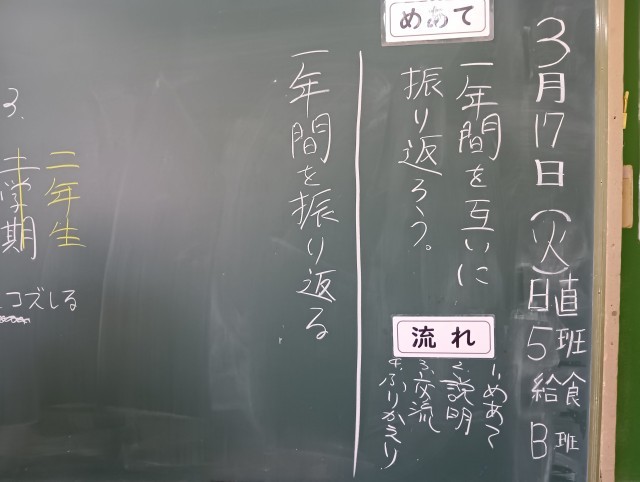 3月17日(火)日直5班
給食B班
めあて
一年間を互いに
振り返ろう。
流れ
1.めあて
2.説明
3.交流
4.ふりかえり
一年間を振り返る
3.
二年生
学期
コズしる